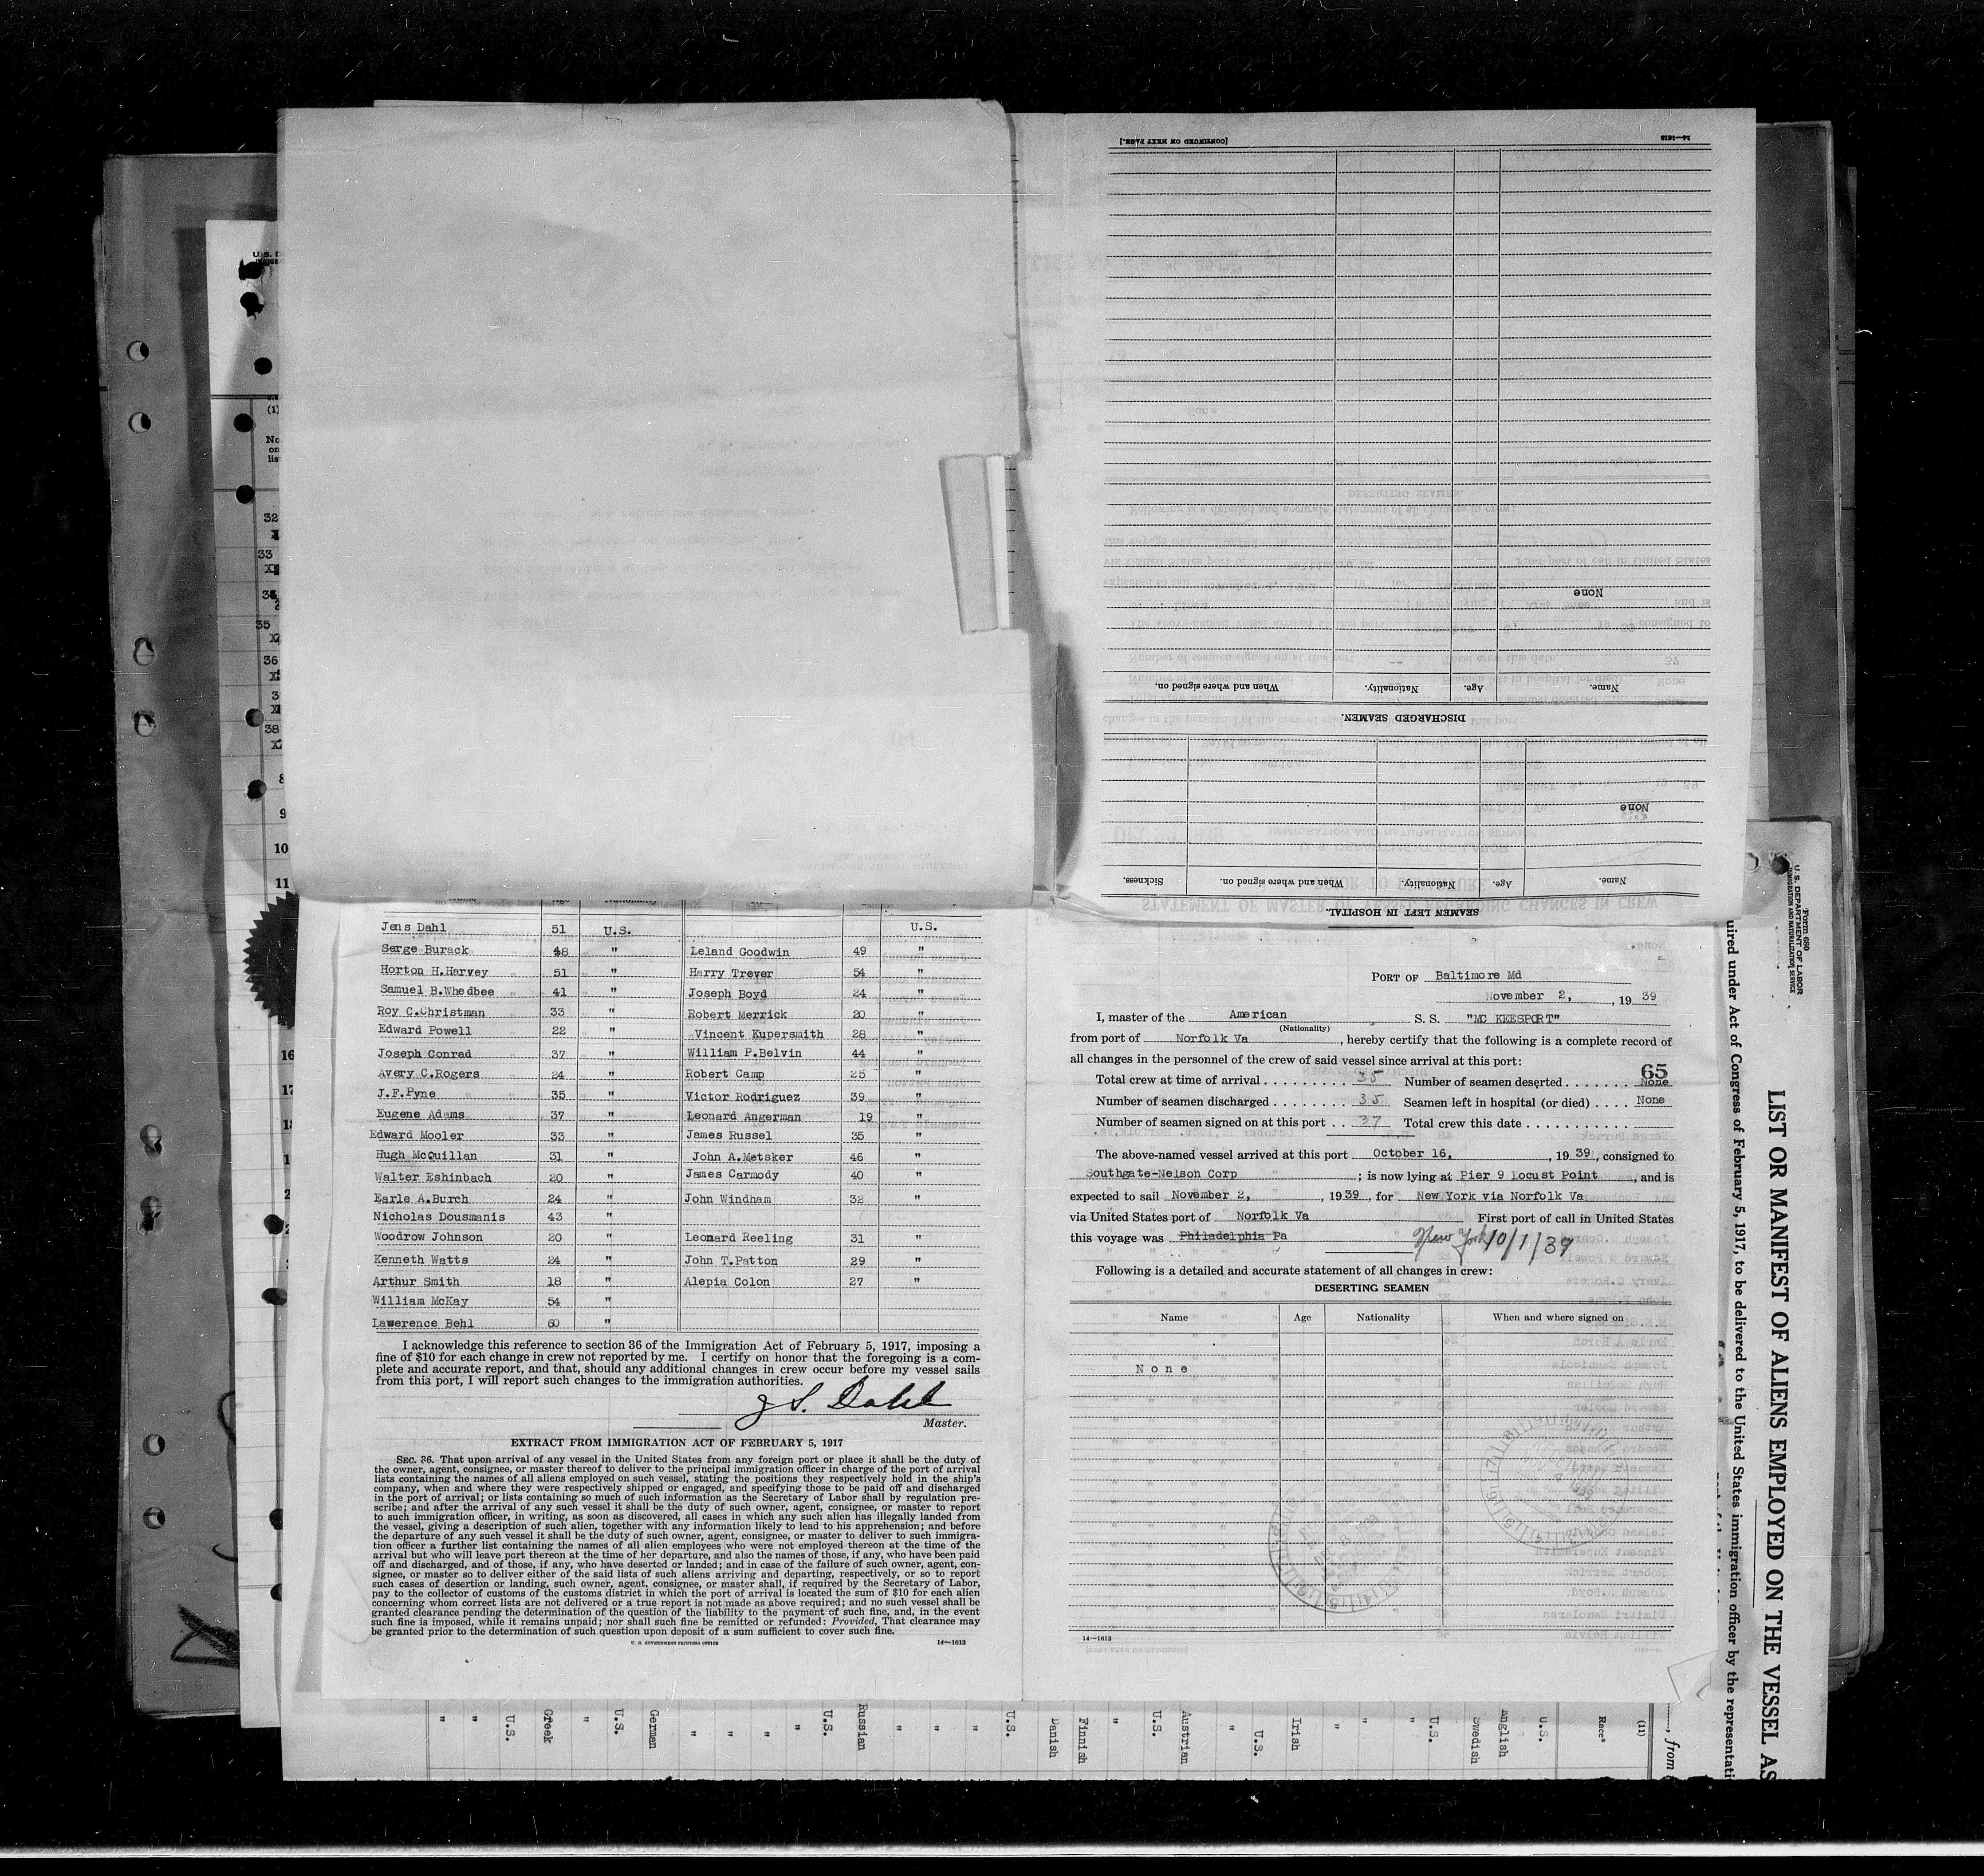 [CONTINUED ON NEXT PAGE.]
14—1613
None
Name.
Age.
Nationality.
When and where signed on.
DISCHARGED SEAMEN.
None
Name.
Age.
Nationality.
When and where signed on.
Sickness.
SEAMEN LEFT IN HOSPITAL.
Jens Dahl 51 U.S. U.S.
Serge Burack 48 " Leland Goodwin 49 "
Horton H.Harvey 51 " Harry Trever 54 "
Samuel B.Whedbee 41 " Joseph Boyd 24 "
Roy C.Christman 33 " Robert Merrick 20 "
Edward Powell 22 " Vincent Kupersmith 28 "
Joseph Conrad 37 " William P.Belvin 44 "
Avery C.Rogers 24 " Robert Camp 25 "
J.F.Pyne 35 " Victor Rodriguez 39 "
Eugene Adams 37 " Leonard Angerman 19 "
Edward Mooler 33 " James Russel 35 "
Hugh McQuillan 31 " John A.Metsker 46 "
Walter Eshinbach 20 " James Carmody 40 "
Earle A.Burch 24 " John Windham 32 "
Nicholas Dousmanis 43 "
Woodrow Johnson 20 " Leonard Reeling 31 "
Kenneth Watts 24 " John T.Patton 29 "
Arthur Smith 18 " Alepia Colon 27 "
William McKay 54 "
Lawerence Behl 60 "
I acknowledge this reference to section 36 of the Immigration Act of February 5, 1917, imposing a
fine of $10 for each change in crew not reported by me. I certify on honor that the foregoing is a com-
plete and accurate report, and that, should any additional changes in crew occur before my vessel sails
from this port, I will report such changes to the immigration authorities.
J S. Dahl
Master.
EXTRACT FROM IMMIGRATION ACT OF FEBRUARY 5, 1917
SEC. 36. That upon arrival of any vessel in the United States from any foreign port or place it shall be the duty of
the owner, agent, consignee, or master thereof to deliver to the principal immigration officer in charge of the port of arrival
lists containing the names of all aliens employed on such vessel, stating the positions they respectively hold in the ship's
company, when and where they were respectively shipped or engaged, and specifying those to be paid off and discharged
in the port of arrival; or lists containing so much of such information as the Secretary of Labor shall by regulation pre-
scribe; and after the arrival of any such vessel it shall be the duty of such owner, agent, consignee, or master to report
to such immigration officer, in writing, as soon as discovered, all cases in which any such alien has illegally landed from
the vessel, giving a description of such alien, together with any information likely to lead to his apprehension; and before
the departure of any such vessel it shall be the duty of such owner, agent, consignee, or master to deliver to such immigra-
tion officer a further list containing the names of all alien employees who were not employed thereon at the time of the
arrival but who will leave port thereon at the time of her departure, and also the names of those, if any, who have been paid
off and discharged, and of those, if any, who have deserted or landed; and in case of the failure of such owner, agent, con-
signee, or master so to deliver either of the said lists of such aliens arriving and departing, respectively, or so to report
such cases of desertion or landing, such owner, agent, consignee, or master shall, if required by the Secretary of Labor,
pay to the collector of customs of the customs district in which the port of arrival is located the sum of $10 for each alien
concerning whom correct lists are not delivered or a true report is not made as above required; and no such vessel shall be
granted clearance pending the determination of the question of the liability to the payment of such fine, and, in the event
such fine is imposed, while it remains unpaid; nor shall such fine be remitted or refunded: Provided, That clearance may
be granted prior to the determination of such question upon deposit of a sum sufficient to cover such fine.
U. S. GOVERNMENT PRINTING OFFICE 14—1613
PORT OF Baltimore Md
November 2, , 19 39
I, master of the American S. S. "MC KEESPORT"
(Nationality)
from port of Norfolk Va , hereby certify that the following is a complete record of
all changes in the personnel of the crew of said vessel since arrival at this port:
65
Total crew at time of arrival . . . . . . . . . 35 Number of seamen deserted . . . . . . . None
Number of seamen discharged . . . . . . . . 35 Seamen left in hospital (or died) . . . . None
Number of seamen signed on at this port . . 37 Total crew this date . . . . . . . . . . .
The above-named vessel arrived at this port October 16, , 19 39, consigned to
Southgate-Nelson Corp ; is now lying at Pier 9 Locust Point , and is
expected to sail November 2, , 19 39, for New York via Norfolk Va
via United States port of Norfolk Va First port of call in United States
this voyage was Philadelphia Pa New York 10/1/39
Following is a detailed and accurate statement of all changes in crew:
DESERTING SEAMEN
Name Age Nationality When and where signed on
None
14—1613
Form 680
U. S. DEPARTMENT OF LABOR
IMMIGRATION AND NATURALIZATION SERVICE
LIST OR MANIFEST OF ALIENS EMPLOYED ON THE VESSEL AS
uired under Act of Congress of February 5, 1917, to be delivered to the United States immigration officer by the representati
, from
(11)
Race*
U.S.
English
Swedish
U.S.
"
"
"
Irish
U.S.
"
Austrian
U.S.
"
Finnish
Danish
U.S.
"
"
"
Russian
U.S.
"
"
"
"
German
U.S.
"
Greek
U.S.
"
"
(1)
No
on
lis
32
33
35
36
38
9
10
11
16
17